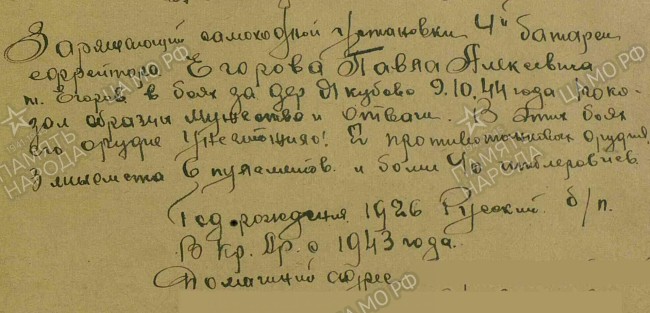 Заряжающий самоходной установки 4й батареи
ефрейтора Егорова Павла Алексеевича
т. Егоров в боях за дер Якубово 9.10.44 года пока-
зал образцы мужества и отваги. В этих боях
его орудие уничтожило: 2 противотанковых орудия,
3 миномета 6 пулеметов и более 40 гитлеровцев.
Год рождения 1926 Русский б/п.
В Кр. Ар. с 1943 года.
Домашний адрес
ПАМЯТЬ НАРОДА
ЦАМО.РФ